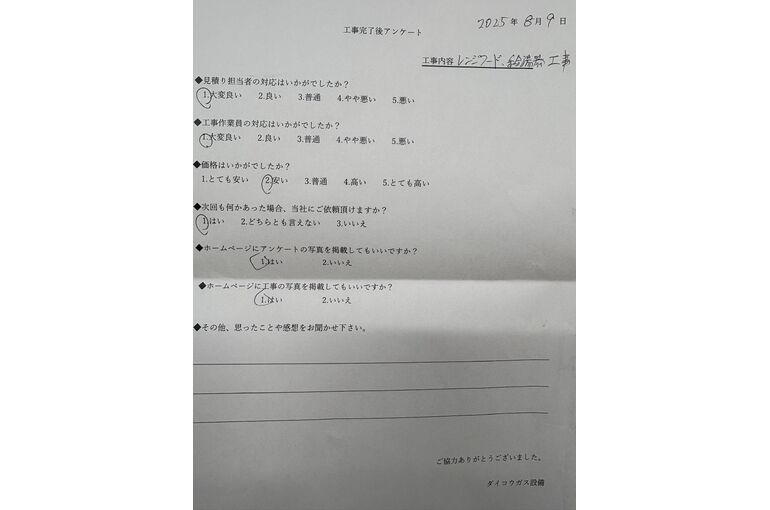 2025年8月9日
工事完了後アンケート
工事内容 レンジフード、給湯器工事
◆見積り担当者の対応はいかがでしたか?
1.大変良い 2.良い 3.普通 4.やや悪い 5.悪い
◆工事作業員の対応はいかがでしたか?
1.大変良い 2.良い 3.普通 4.やや悪い 5.悪い
◆価格はいかがでしたか?
1.とても安い 2.安い 3.普通 4.高い 5.とても高い
◆次回も何かあった場合、当社にご依頼頂けますか?
1.はい 2.どちらとも言えない 3.いいえ
◆ホームページにアンケートの写真を掲載してもいいですか?
1.はい 2.いいえ
◆ホームページに工事の写真を掲載してもいいですか?
1.はい 2.いいえ
◆その他、思ったことや感想をお聞かせ下さい。
ご協力ありがとうございました。
ダイコウガス設備